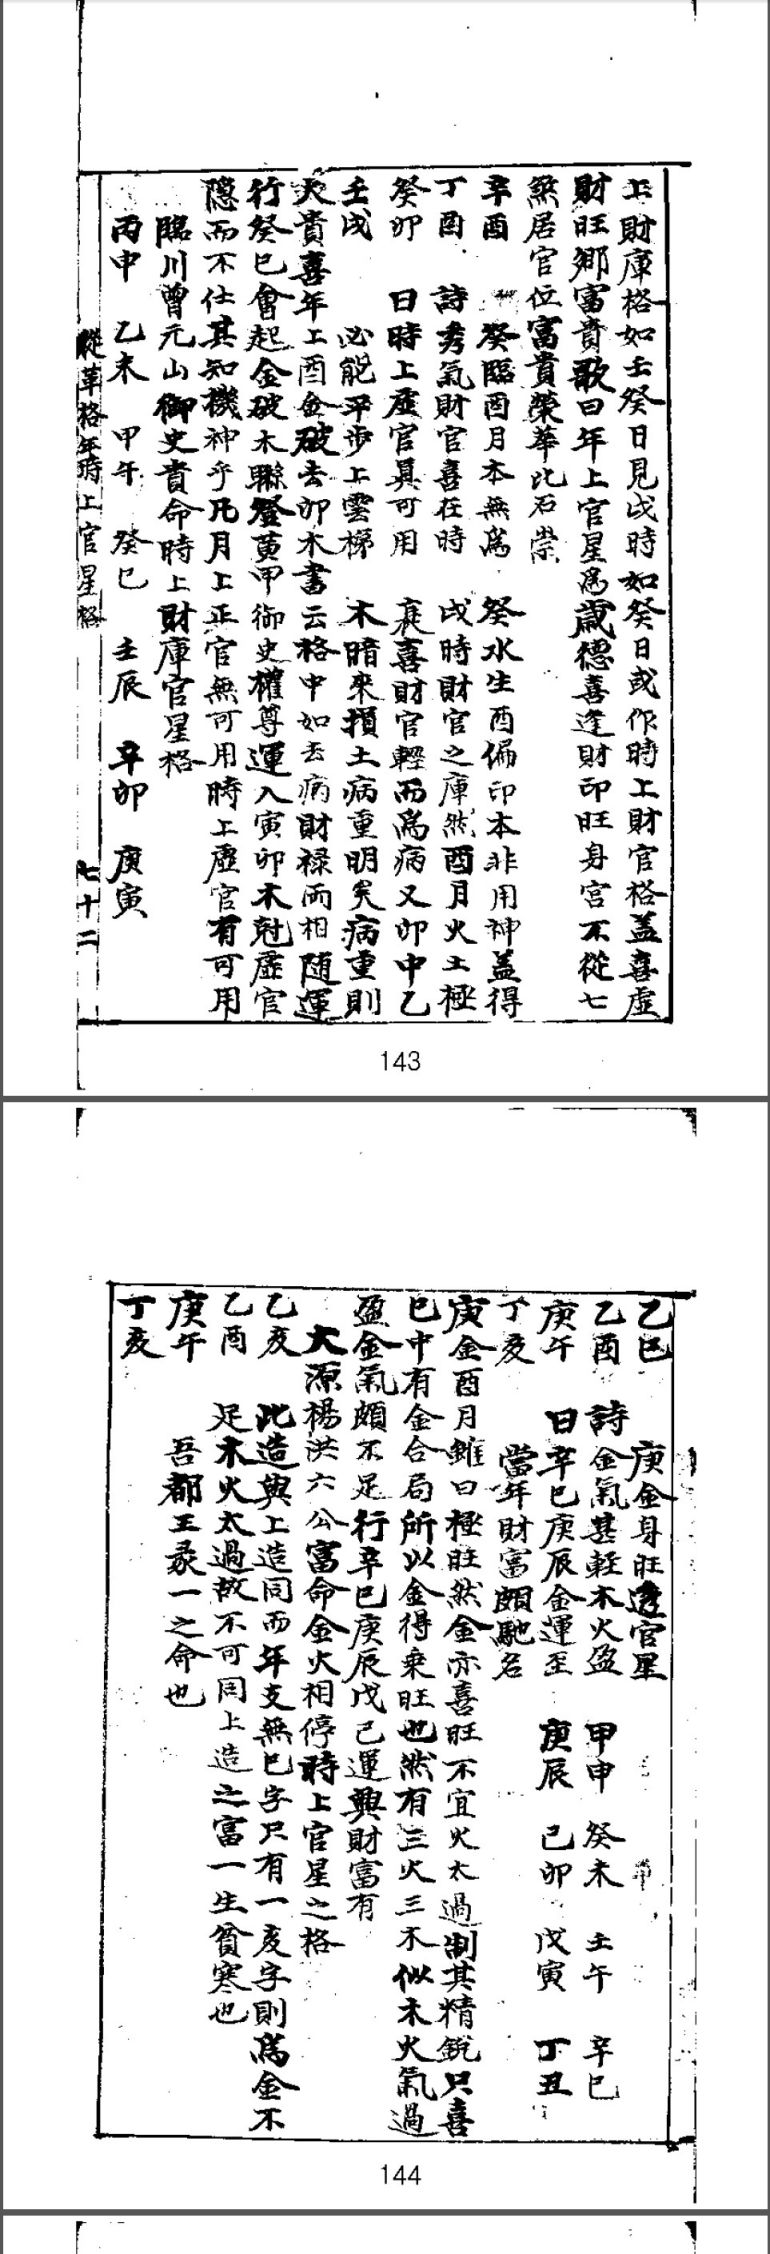 上財庫格如壬癸日見戌時如癸日或作時上財官格盖喜虛
財旺鄉富貴歌曰年上官星爲歲德喜逢財印旺身宮不從七
煞居官位富貴榮華比石崇
辛酉 癸臨酉月本無爲 癸水生酉偏印本非用神盖得
丁酉 詩 秀氣財官喜在時 戌時財官之庫然酉月火土極
癸卯 曰 時上虛官具可用 衰喜財官輕而爲病又卯中乙
壬戌 必能平步上雲梯 木暗來損土病重明矣病重則
大貴喜年上酉金破去卯木書云格中如去病財禄兩相随運
行癸巳會起金破木聯登黄甲御史權尊運入寅卯木尅虛官
隐而不仕其知機神乎凡月上正官無可用時上虛官有可用
臨川曾元山御史貴命時上財庫官星格
丙申 乙未 甲午 癸巳 壬辰 辛卯 庚寅
從革格年時上官星格 七十二
143
乙巳 庚金身旺透官星
乙酉 詩 金氣甚軽木火盈 甲申 癸未 壬午 辛巳
庚午 曰 辛巳庚辰金運至 庚辰 己卯 戊寅 丁丑
丁亥 當年財富頗馳名
庚金酉月雖曰極旺然金亦喜旺不宜火太過制其精銳只喜
巳中有金合局所以金得乘旺也然有三火三木似木火氣過
盈金氣頗不足行辛巳庚辰戊己運興財富有
大源楊洪六公富命金火相停時上官星之格
乙亥 此造與上造同而年支無巳字只有一亥字則爲金不
乙酉 足木火太過故不可同上造之富一生貧寒也
庚午 吾都王录一之命也
丁亥
144